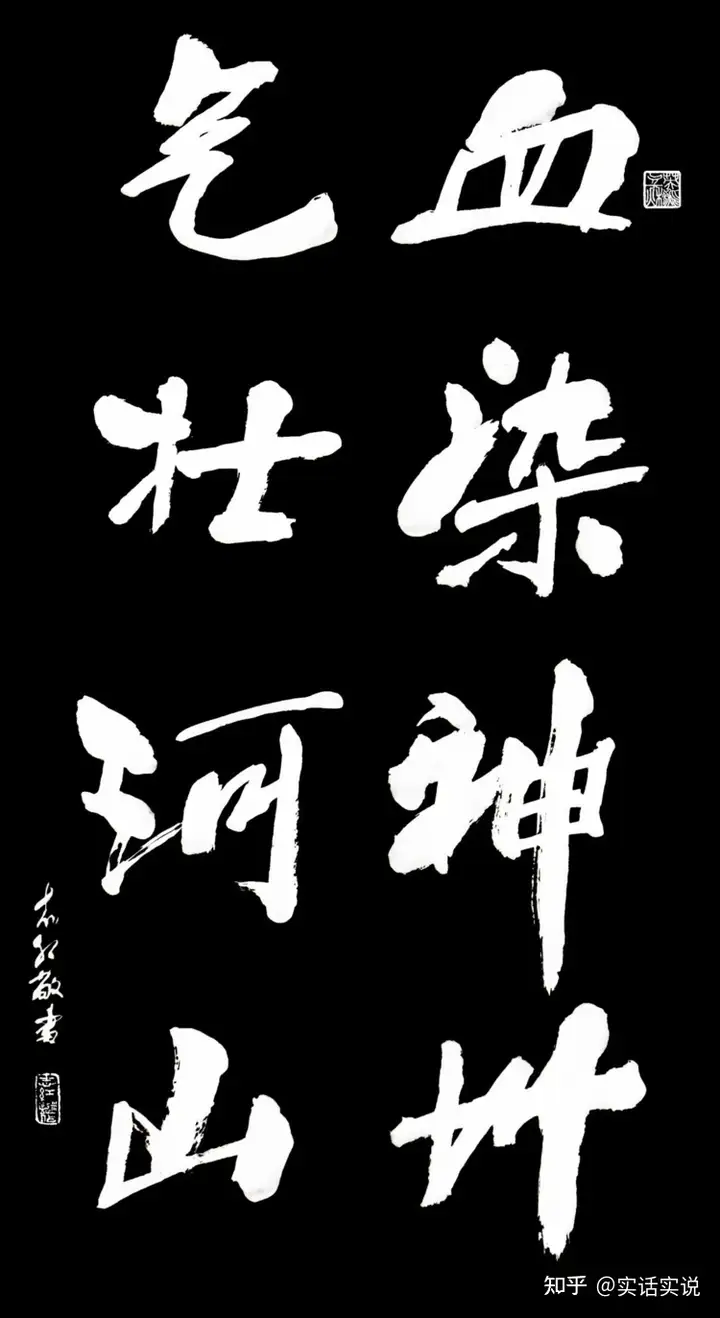 血染神州
气壮河山
志红敬書
知乎 @实话实说